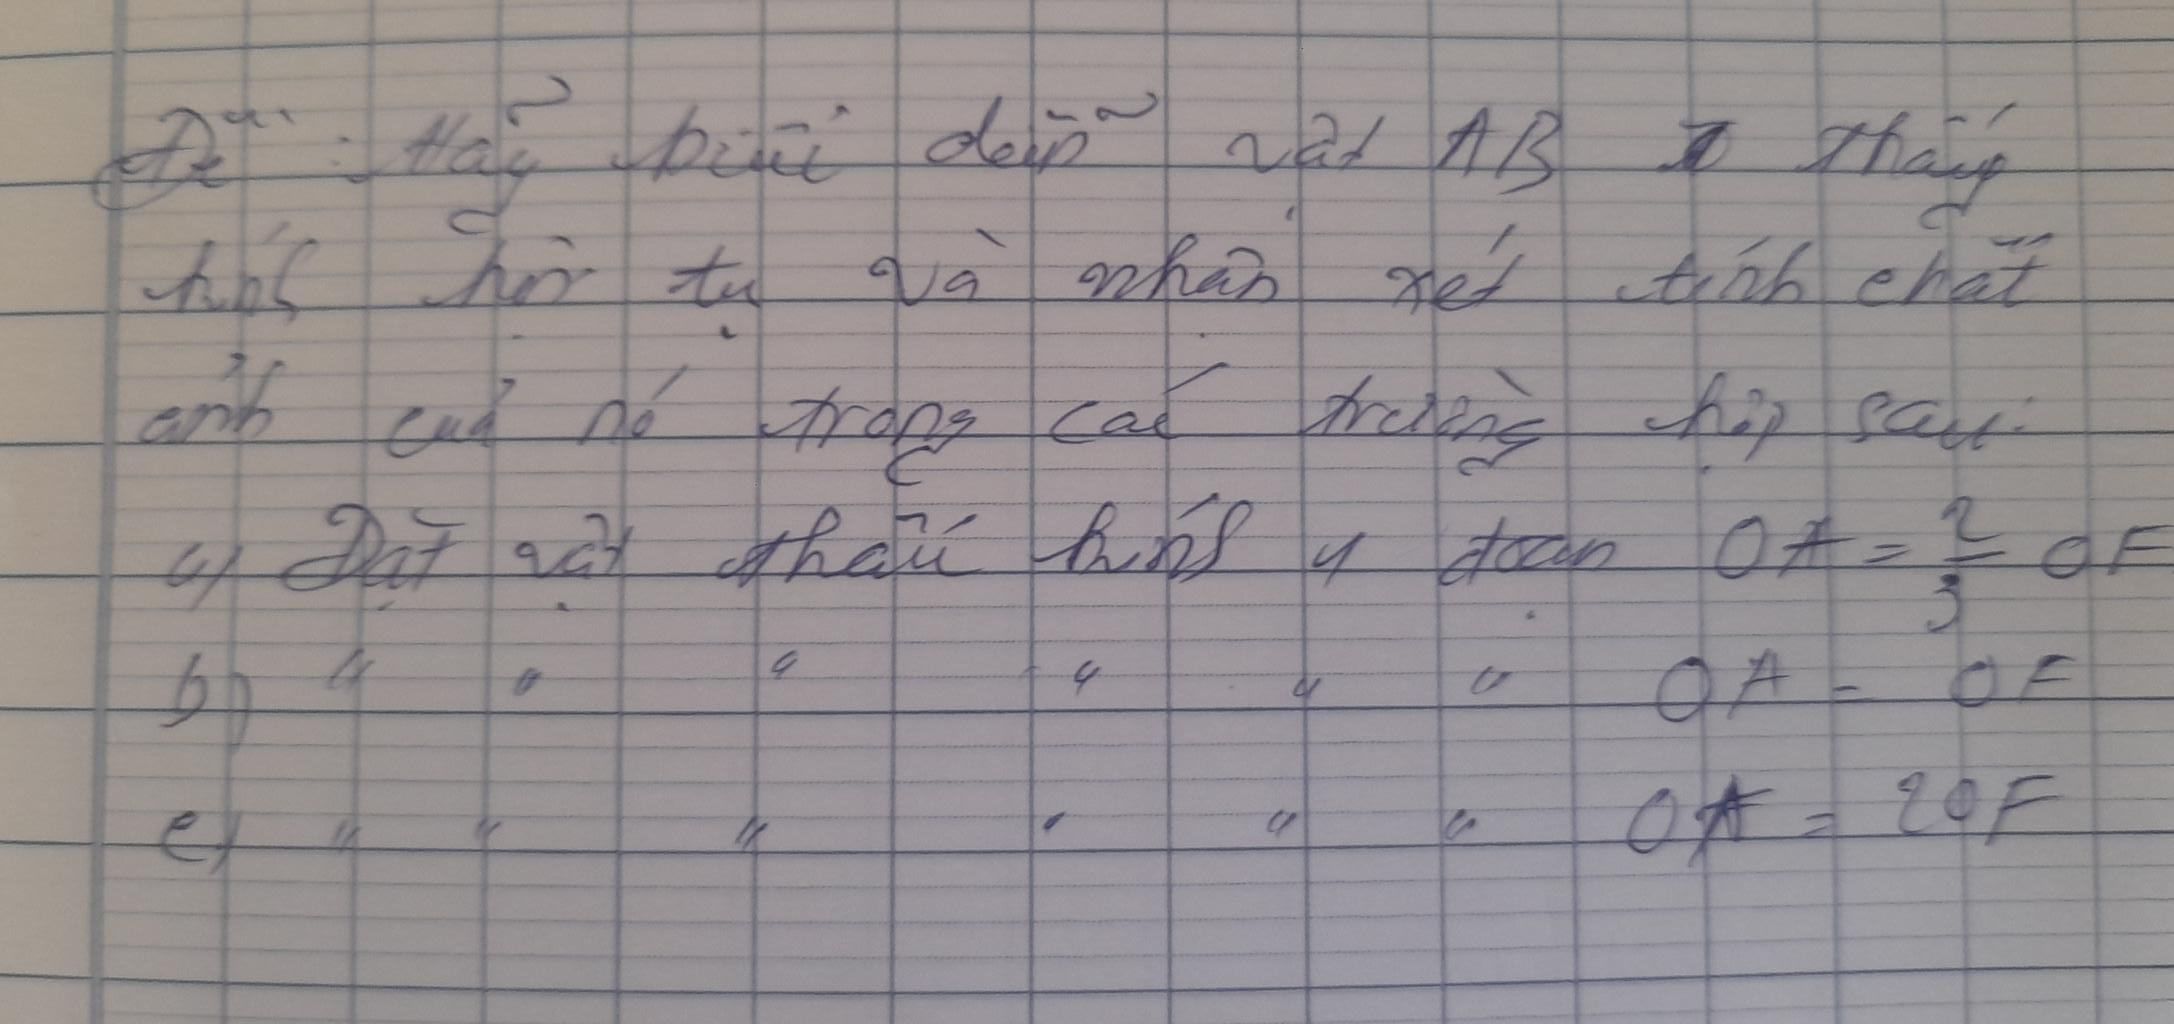 Đề : Hãy biểu diễn vật AB thấu
kính hội tụ và nhận xét tính chất
ảnh của nó trong các trường hợp sau:
a) Đặt vật thấu kính 1 đoạn OA = 2/3 OF
b) " " " " " " OA = OF
c) " " " " " " OA = 2OF